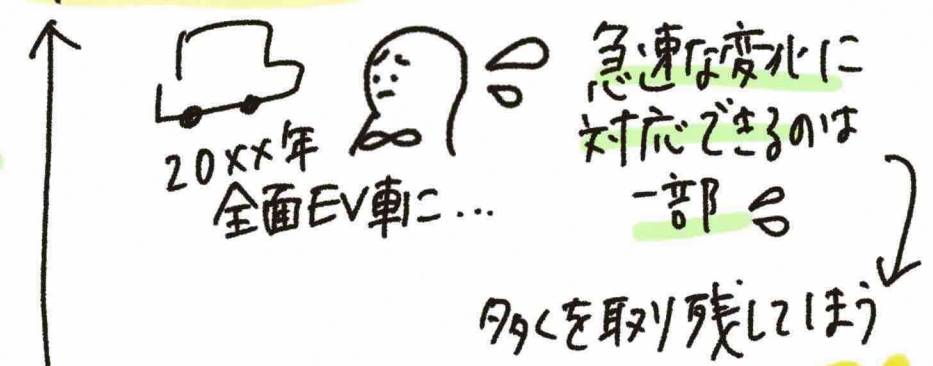 20XX年
全面EV車に...
急速な変化に
対応できるのは
一部
多くを取り残してしまう